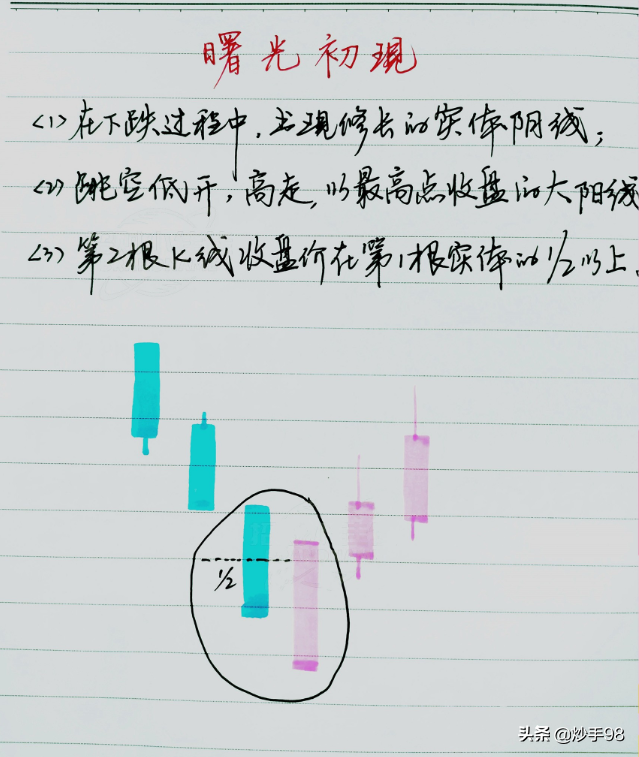 曙光初現
<1>在下跌过程中,出現修长的实体阴线;
<2>跳空低开,高走,以最高点收盘的大阳线
<3>第2根K线收盘价在第1根实体的1/2以上.
1/2
头条 @炒手98